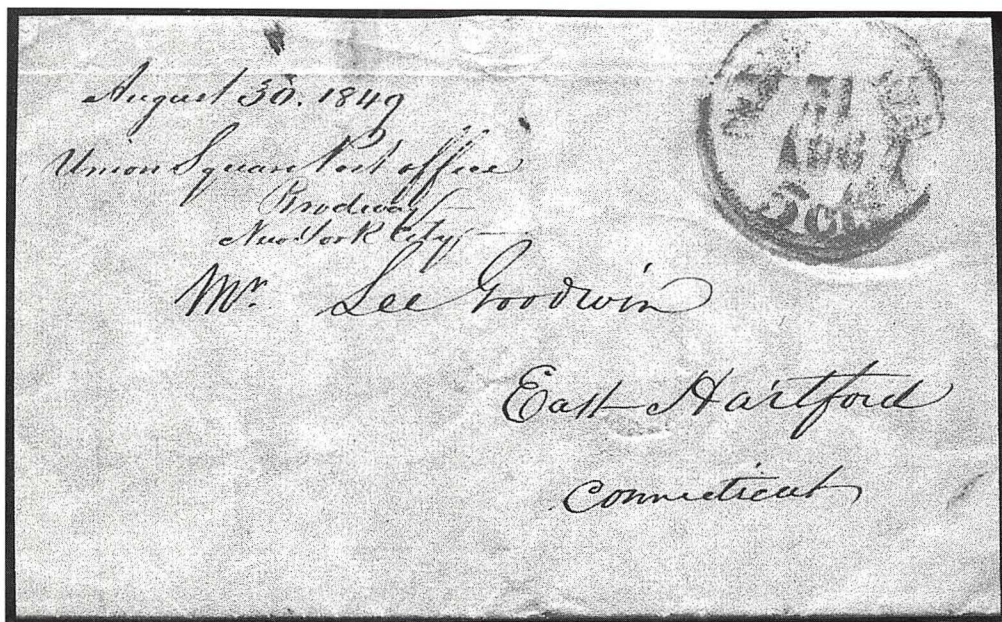 August 30. 1849
Union Square Post office
Brodway
New York City
Mr. Lee Goodwin
East Hartford
Connecticut
31
AUG
5 cts